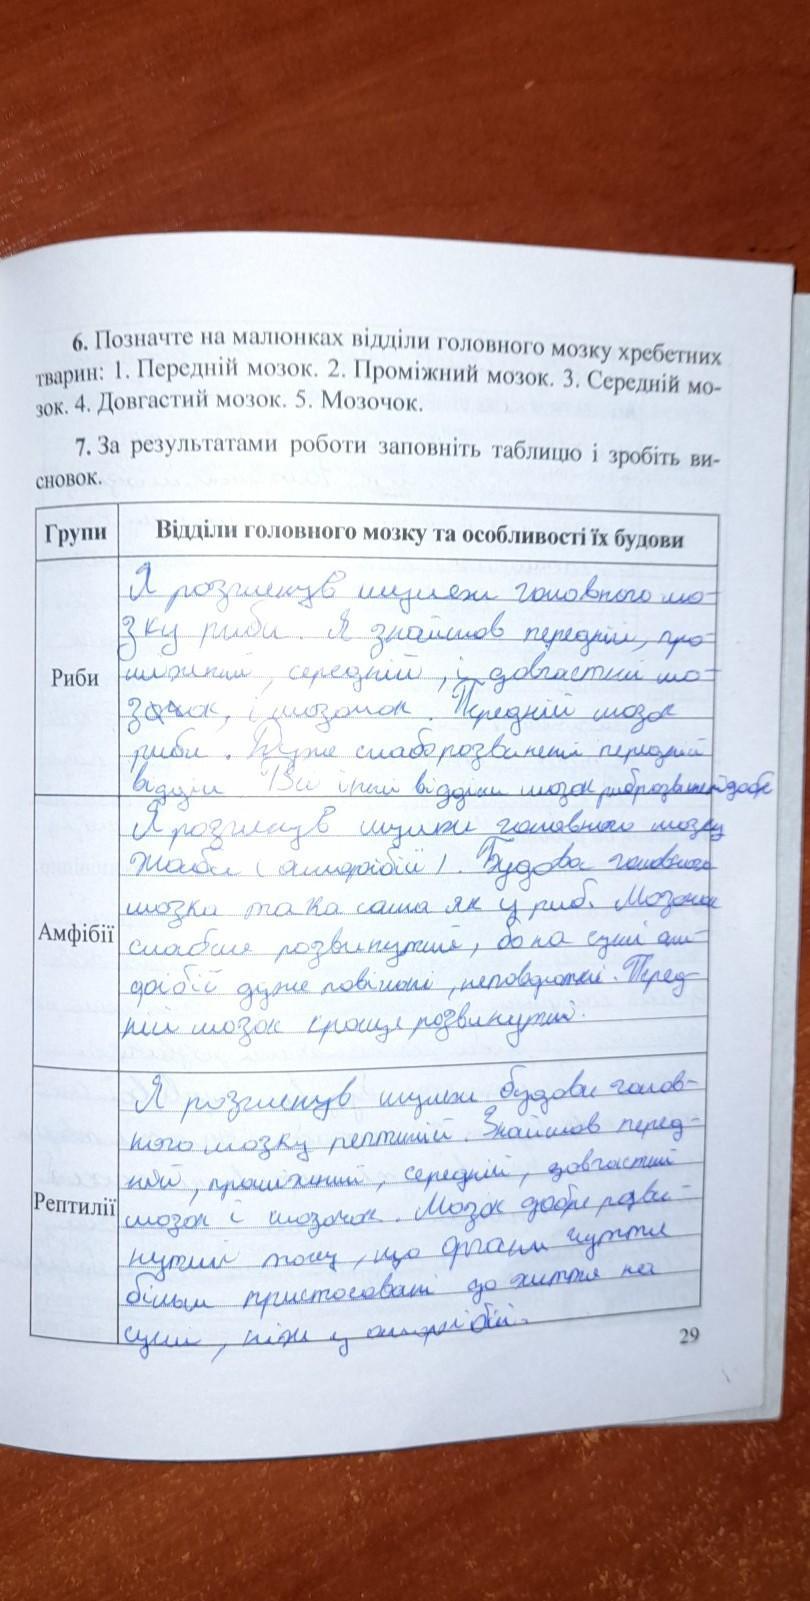 6. Позначте на малюнках відділи головного мозку хребетних
тварин: 1. Передній мозок. 2. Проміжний мозок. 3. Середній мо-
зок. 4. Довгастий мозок. 5. Мозочок.
7. За результатами роботи заповніть таблицю і зробіть ви-
сновок.
Групи
Відділи головного мозку та особливості їх будови
Риби
Я розглянув муляжі головного мо-
зку риби. Я знайшов передній, про-
міжний, середній, і довгастий мо-
зок, і мозочок. Передній мозок
риби. Дуже слаборозвинений передній
відділ Всі інші відділи мозок риб розвинені добре
Амфібії
Я розглянув муляжі головного мозку
жаби (амфібії). Будова головного
мозка така сама як у риб. Мозочок
слабше розвинутий, бо на суші ам-
фібії дуже повільні, неповороткі. Перед-
ній мозок краще розвинутий.
Рептилії
Я розглянув муляжі будови голов-
ного мозку рептилій. Знайшов перед-
ній, проміжний, середній, довгастий
мозок і мозочок. Мозок добре розви-
нутий тому, що органи чуття
більш пристосовані до життя на
суші, ніж у амфібій.
29